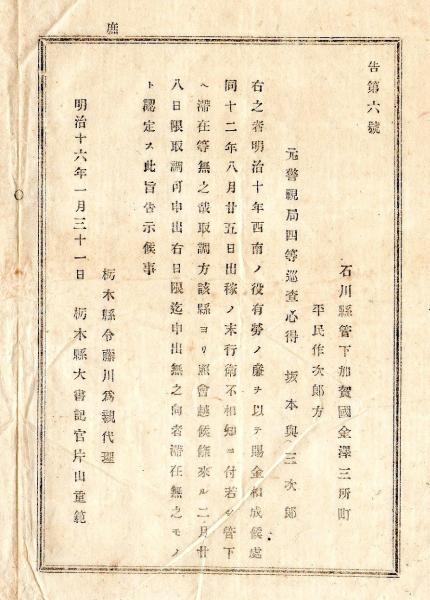 庶
告第六號
石川縣管下加賀國金澤三所町
平民作次郎方
元警視局四等巡査心得 坂本與三次郎
右之者明治十年西南ノ役有勞ノ廉ヲ以テ賜金相成候處
同十二年八月廿五日出稼ノ末行衛不相知ニ付若シ管下
ヘ滯在等無之哉取調方該縣ヨリ照會越候條來ル二月廿
八日限取調可申出右日限迄申出無之向者滯在無之モノ
ト認定ス此旨告示候事
栃木縣令藤川爲親代理
明治十六年一月三十一日 栃木縣大書記官片山重範